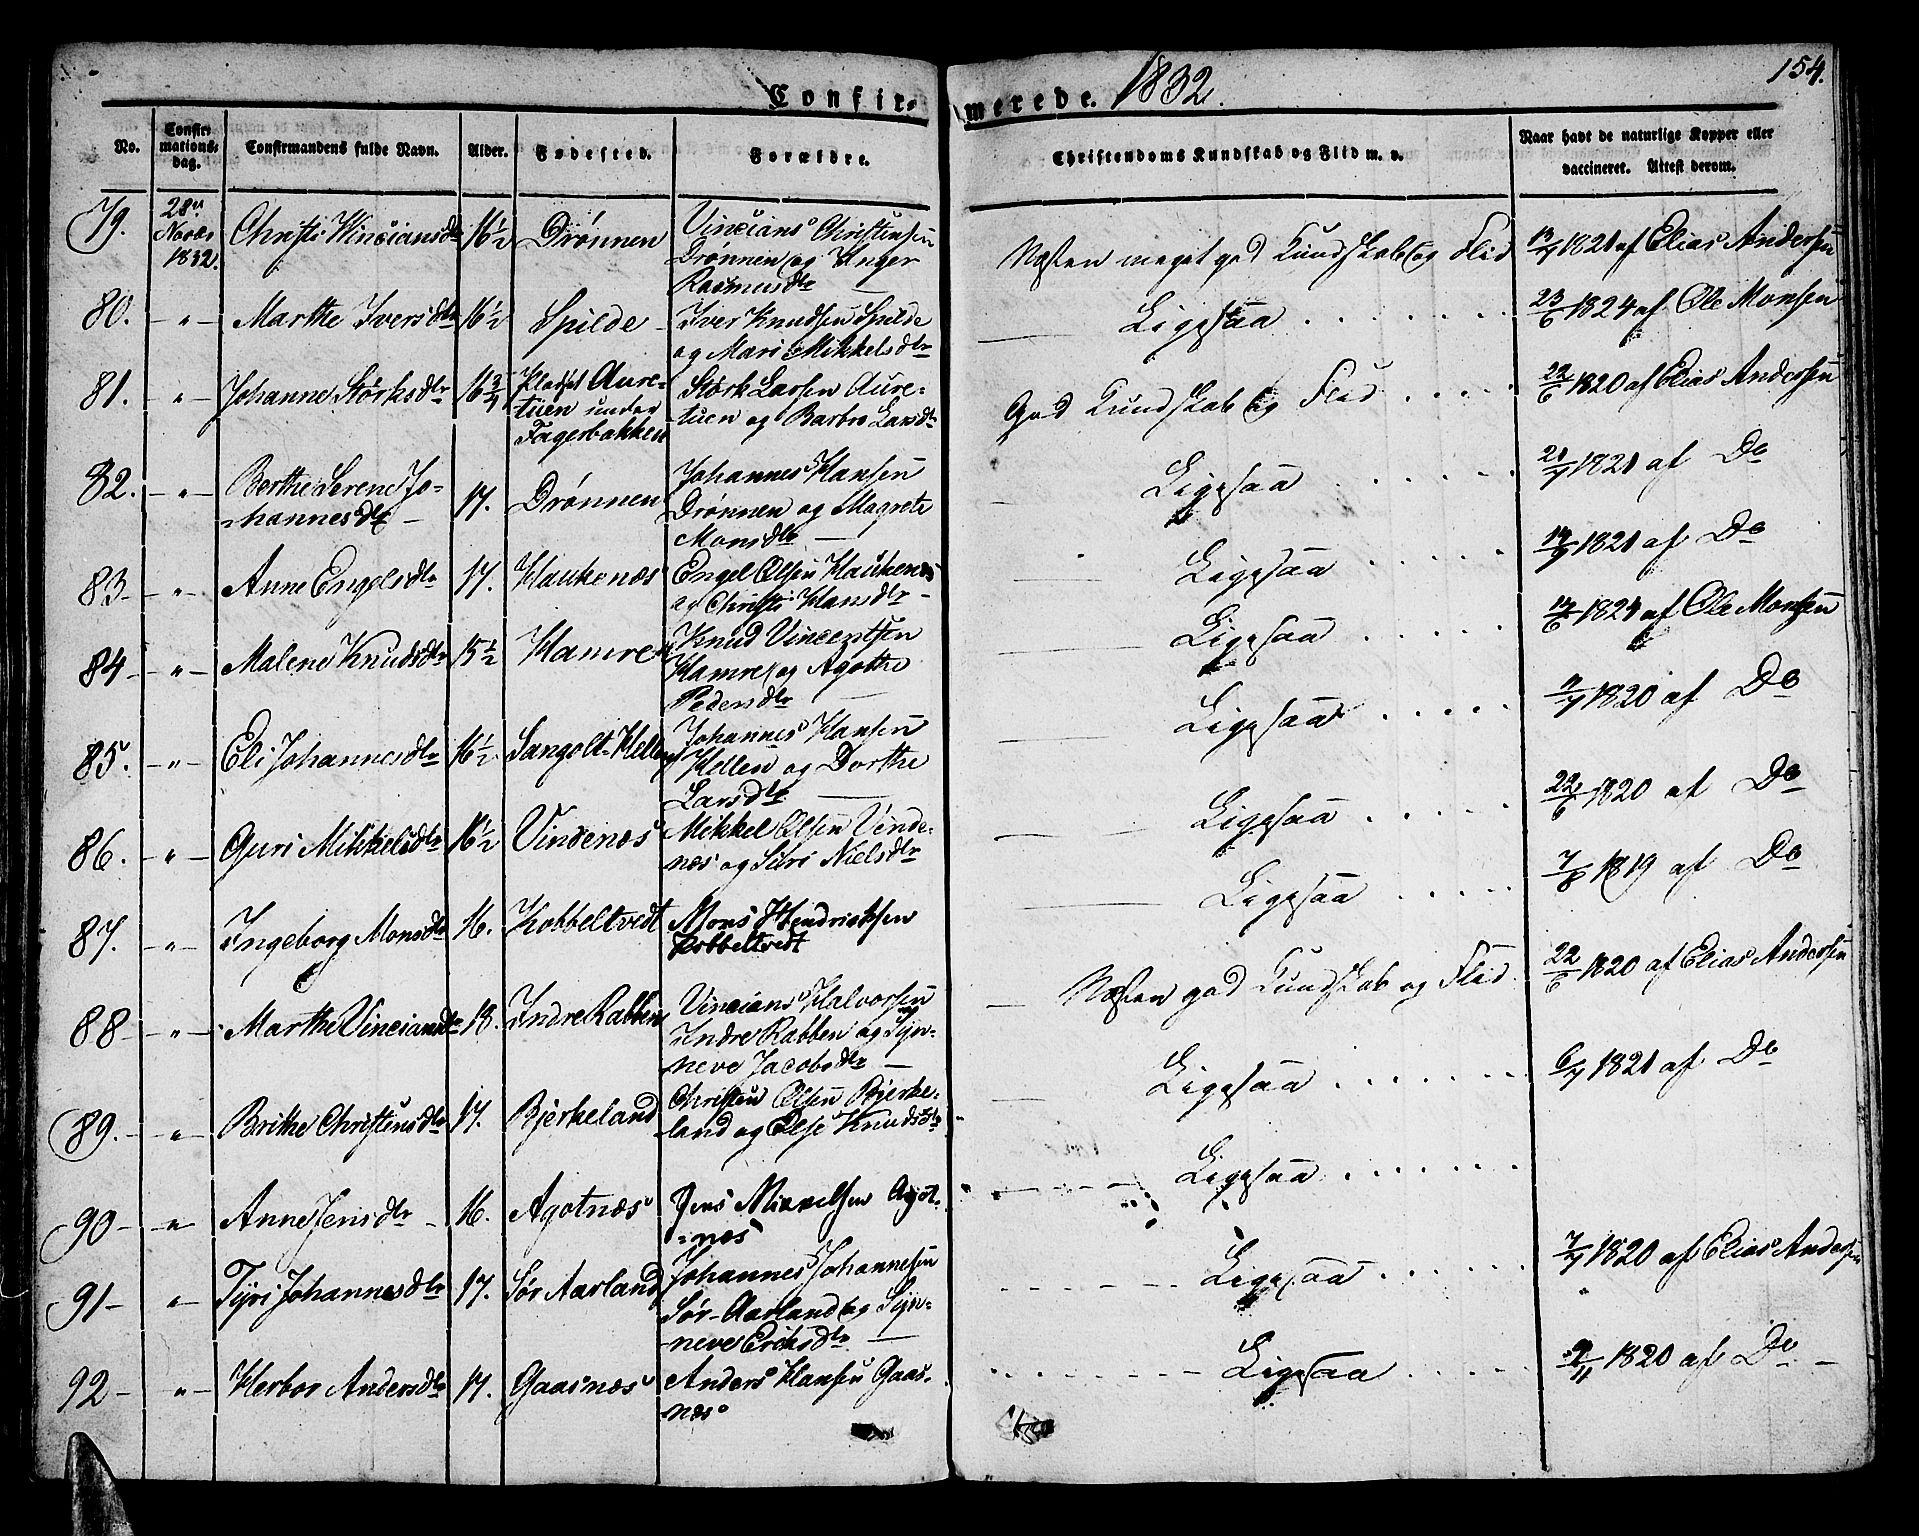 154.
Confir-merede. 1832.
No. Confirmationsdag. Confirmandens fulde Navn. Alder. Fødested. Forældre. Christendoms Kundskab og Flid m. v. Naar havt de naturlige Kopper eller vaccineret. Attest derom.
79. 28de Novbr 1832. Christi Vincians dtr 16 1/2 Drønnen Vincians Christensen Drønnen og Inger Rasmusdtr Næsten meget god Kundskab og Flid 1821 af Elias Andersen
80. -"- Marthe Iversdtr 16 1/2 Spilde Iver Knudsen Spilde og Mari Mikkelsdtr Ligesaa 23/6 1824 af Ole Monsen
81. -"- Johanne Størksdtr 16 3/4 Pladset Auretuen under Fagerbakken Størk Larsen Auretuen og Barbro Larsdtr God Kundskab og Flid 22/6 1820 af Elias Andersen
82. -"- Berthe Serene Johannesdtr 17. Drønnen Johannes Hansen Drønnen og Magrete Monsdtr Ligesaa 1821 af Do
83 -"- Anne Engelsdtr 17. Haukenæs Engel Olsen Haukenæs og Christi Hansdtr Ligesaa 1821 af Do
84 -"- Malene Knudsdtr 15 1/2 Hamre Knud Vincentsen Hamre og Agothe Pedersdtr Ligesaa 1821 af Ole Monsen
85. -"- Eli Johannesdtr 16 1/2 Sangolt-Hellen Johannes Hansen Hellen og Dorthe Larsdtr Ligesaa 1820 af Do
86. -"- Guri Mikkelsdtr 16 1/2 Vindenæs Mikkel Olsen Vindenæs og Siri Nielsdtr Ligesaa 22/6 1820 af Do
87. -"- Ingeborg Monsdtr 16. Kobbeltvedt Mons Hendricksen Kobbeltvedt Ligesaa 7/8 1819 af Do
88 -"- Marthe Vinciansdtr 18. Indre Rabben Vincians Halvorsen Indre Rabben og Synneve Jacobsdtr Næsten god Kundskab og Flid 22/6 1820 af Elias Andersen
89. -"- Brithe Christensdtr 17. Bjerkeland Christen Olsen Bjerkeland og Else Knudsdtr Ligesaa 6/7 1821 af Do
90 -"- Anne Jensdtr 16. Agotnæs Jens Mikkelsen Agotnæs Ligesaa
91 -"- Tyri Johannesdtr 17. Sør Aarland Johannes Johannesen Sør-Aarland og Synneve Eriksdtr Ligesaa 7/7 1820 af Elias Andersen
92 -"- Herbor Andersdtr 17. Gaasnæs Anders Hansen Gaasnæs Ligesaa 1820 af Do